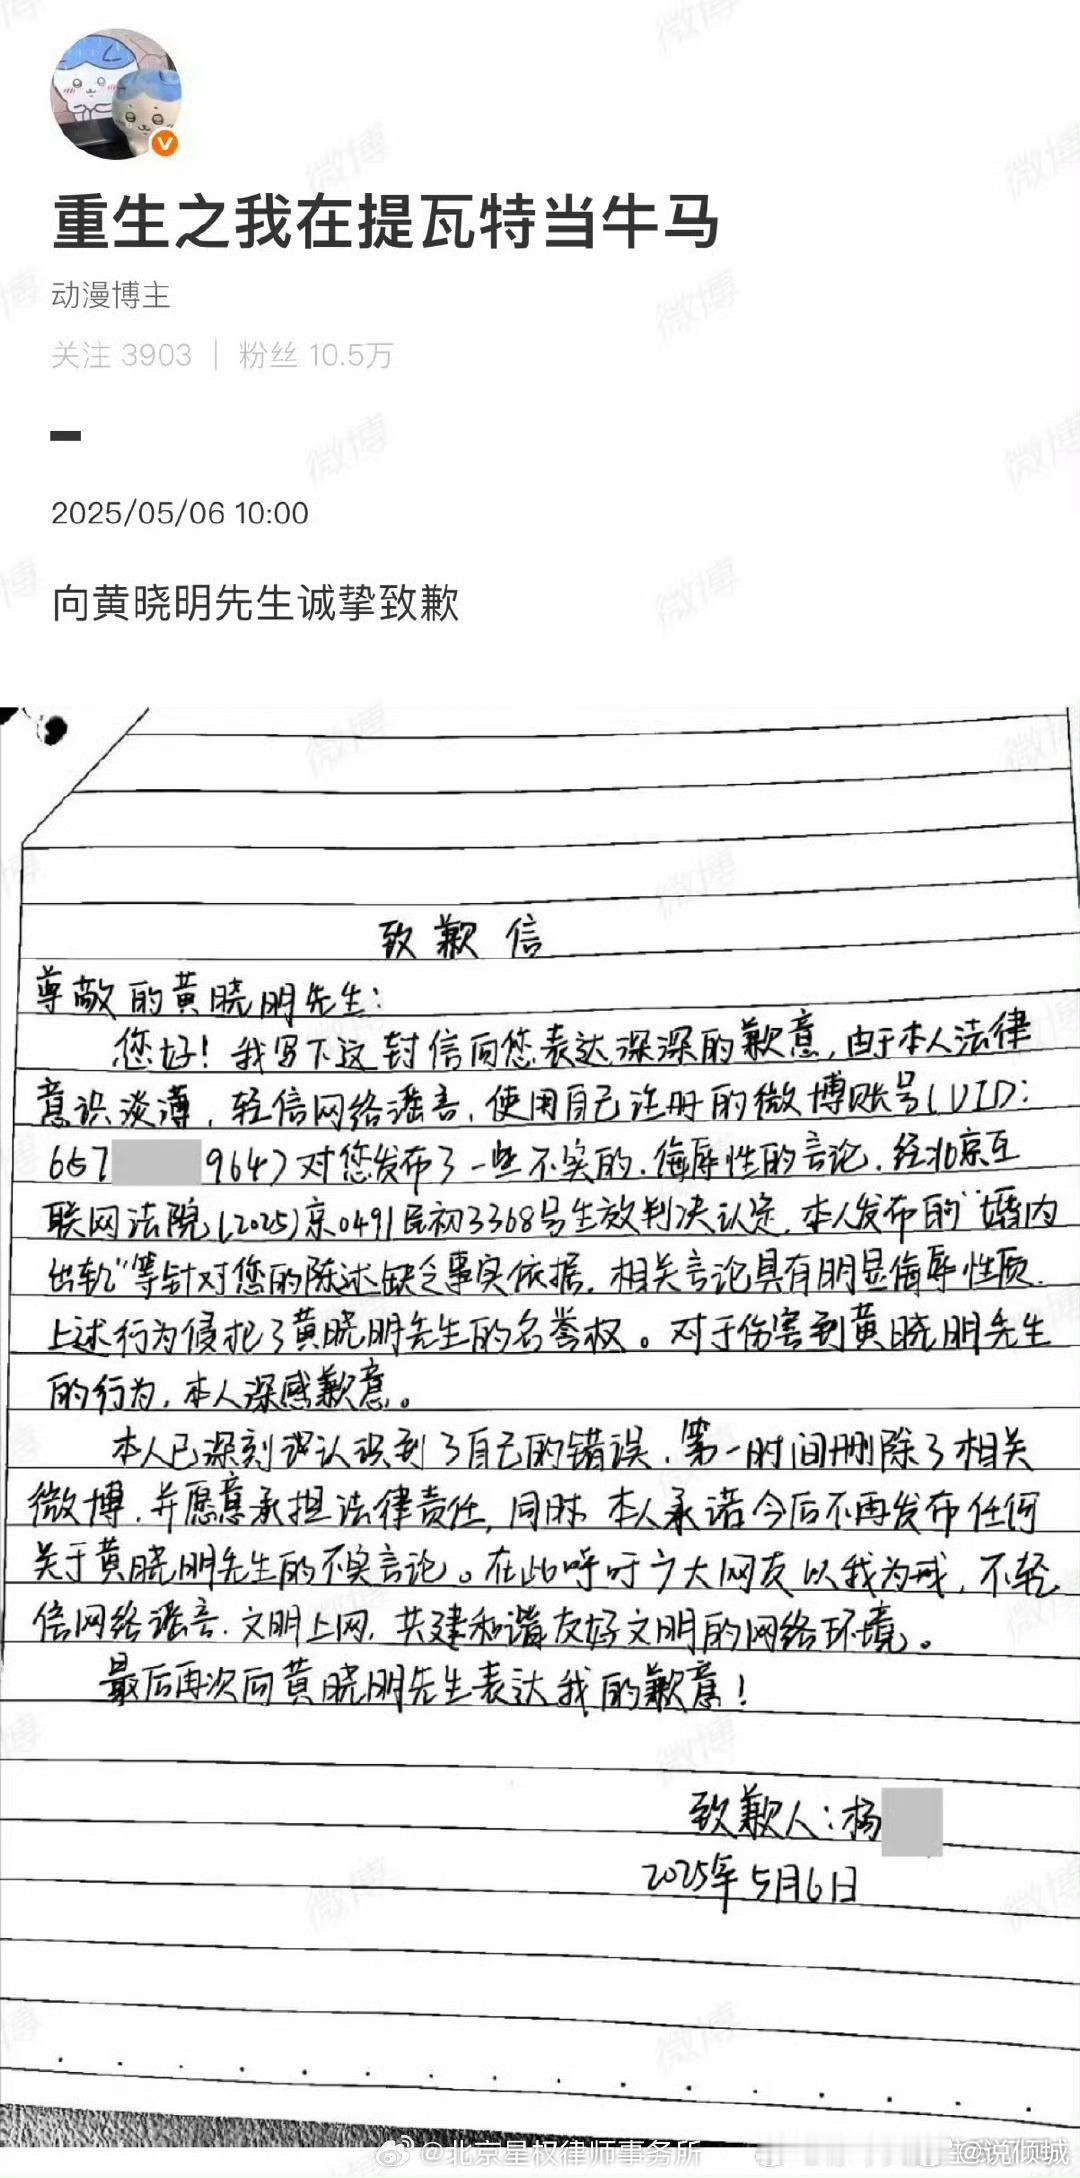 重生之我在提瓦特当牛马
动漫博主
关注 3903 | 粉丝 10.5万
2025/05/06 10:00
向黄晓明先生诚挚致歉
致歉信
尊敬的黄晓明先生：
您好！我写下这封信向您表达深深的歉意，由于本人法律
意识淡薄，轻信网络谣言，使用自己注册的微博账号（UID：
657 9647对您发布了一些不实的、侮辱性的言论，经北京互
联网法院（2025）京0491民初3368号生效判决认定，本人发布的“婚内
出轨”等针对您的陈述缺乏事实依据，相关言论具有明显侮辱性质，
上述行为侵犯了黄晓明先生的名誉权。对于伤害到黄晓明先生
的行为，本人深感歉意。
本人已深刻认识到了自己的错误，第一时间删除了相关
微博，并愿意承担法律责任，同时，本人承诺今后不再发布任何
关于黄晓明先生的不实言论。在此呼吁广大网友以我为戒，不轻
信网络谣言，文明上网，共建和谐友好文明的网络环境。
最后再次向黄晓明先生表达我的歉意！
致歉人：杨
2025年5月6日
@北京星权律师事务所
@说倾城
微博